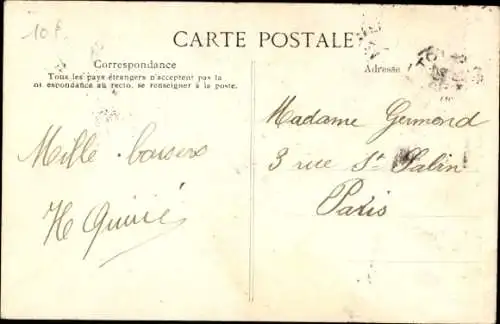 10 f.
CARTE POSTALE
Correspondance
Tous les pays étrangers n'acceptent pas la
correspondance au recto, se renseigner à la poste.
Adresse
Mille baisers
H
Madame Germond
3 rue St Sabin
Paris